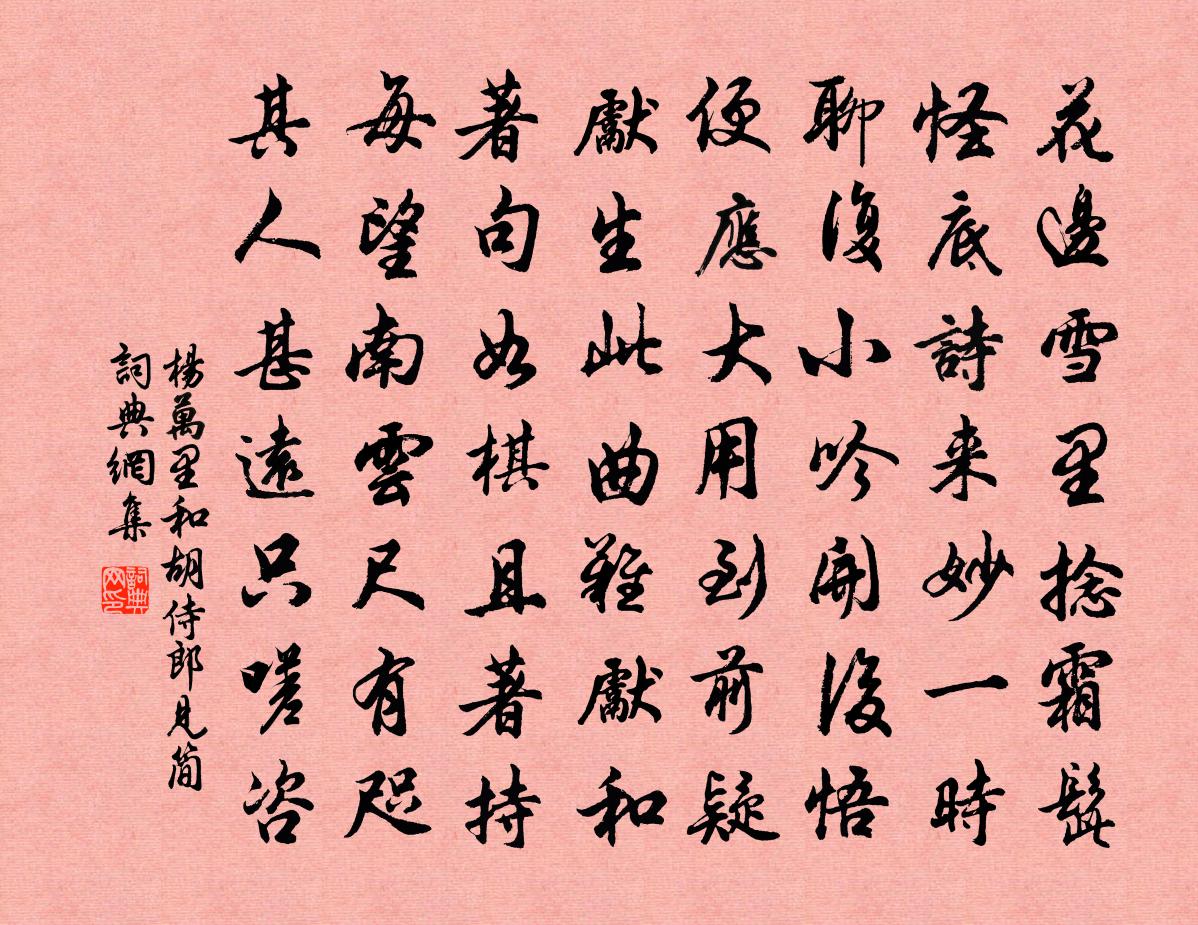 花邊雪里捻霜髭
怪底詩来妙一時
聊復小吟開後悟
便應大用到前疑
獻生此曲難獻和
著句如棋且著持
每望南雲尺有咫
其人甚遠只嗟咨
楊萬里和胡侍郎見簡
詞典網集
詞典网印